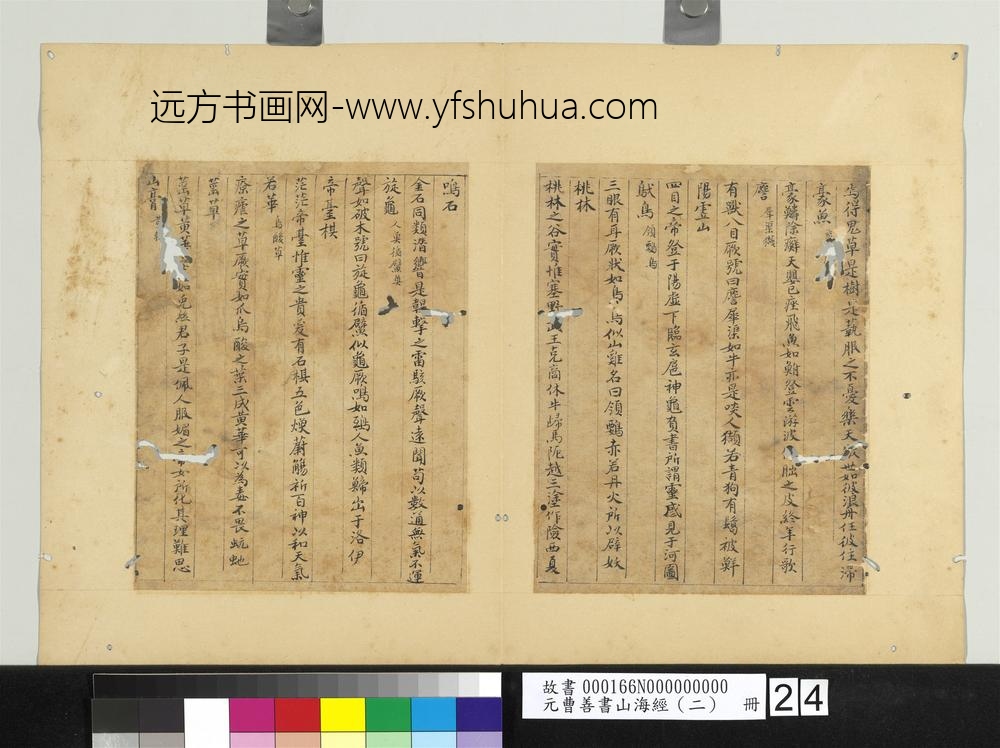 远方书画网-www.yfshuhua.com
焉得鬼草是樹是藝服之不憂樂天傲世如彼浪舟任彼往滯
豪魚
豪鱗除癬天嬰已痤飛魚如鮒登雲游波 䏣之皮終年行歌
有獸八目厥號曰 犀渠如牛亦是啖人獺若青狗有 被鮮
陽虛山
四目之帝登于陽虛下臨玄扈神龜負書所謂靈感見于河圖
鴢鳥 領鶚鳥
三眼有耳厥狀如鳥鳥似山雞名曰領鶚赤若丹火所以辟妖
桃林
桃林之谷實惟塞野武王克商休牛歸馬阨越三塗作險西真
鳴石
金石同類潛響是韞擊之雷駭厥聲遠聞苟以數通無氣不運
旋龜 人魚
聲如破木號曰旋龜 似龜厥鳴如鵄人魚類鯑出于洛伊
帝臺棋
茫茫帝臺惟靈之貴爰有石棋五色煙蔚觴祈百神以和天氣
若華 烏酸草
療瘧之草厥實如瓜烏酸之葉三成黃華可以為毒不畏蚖虵
䔄草
䔄草黃華 如兔絲君子是佩人服媚之帝女所化其理難思
山膏
故書 000166N000000000
元曹善書山海經(二) 冊 24